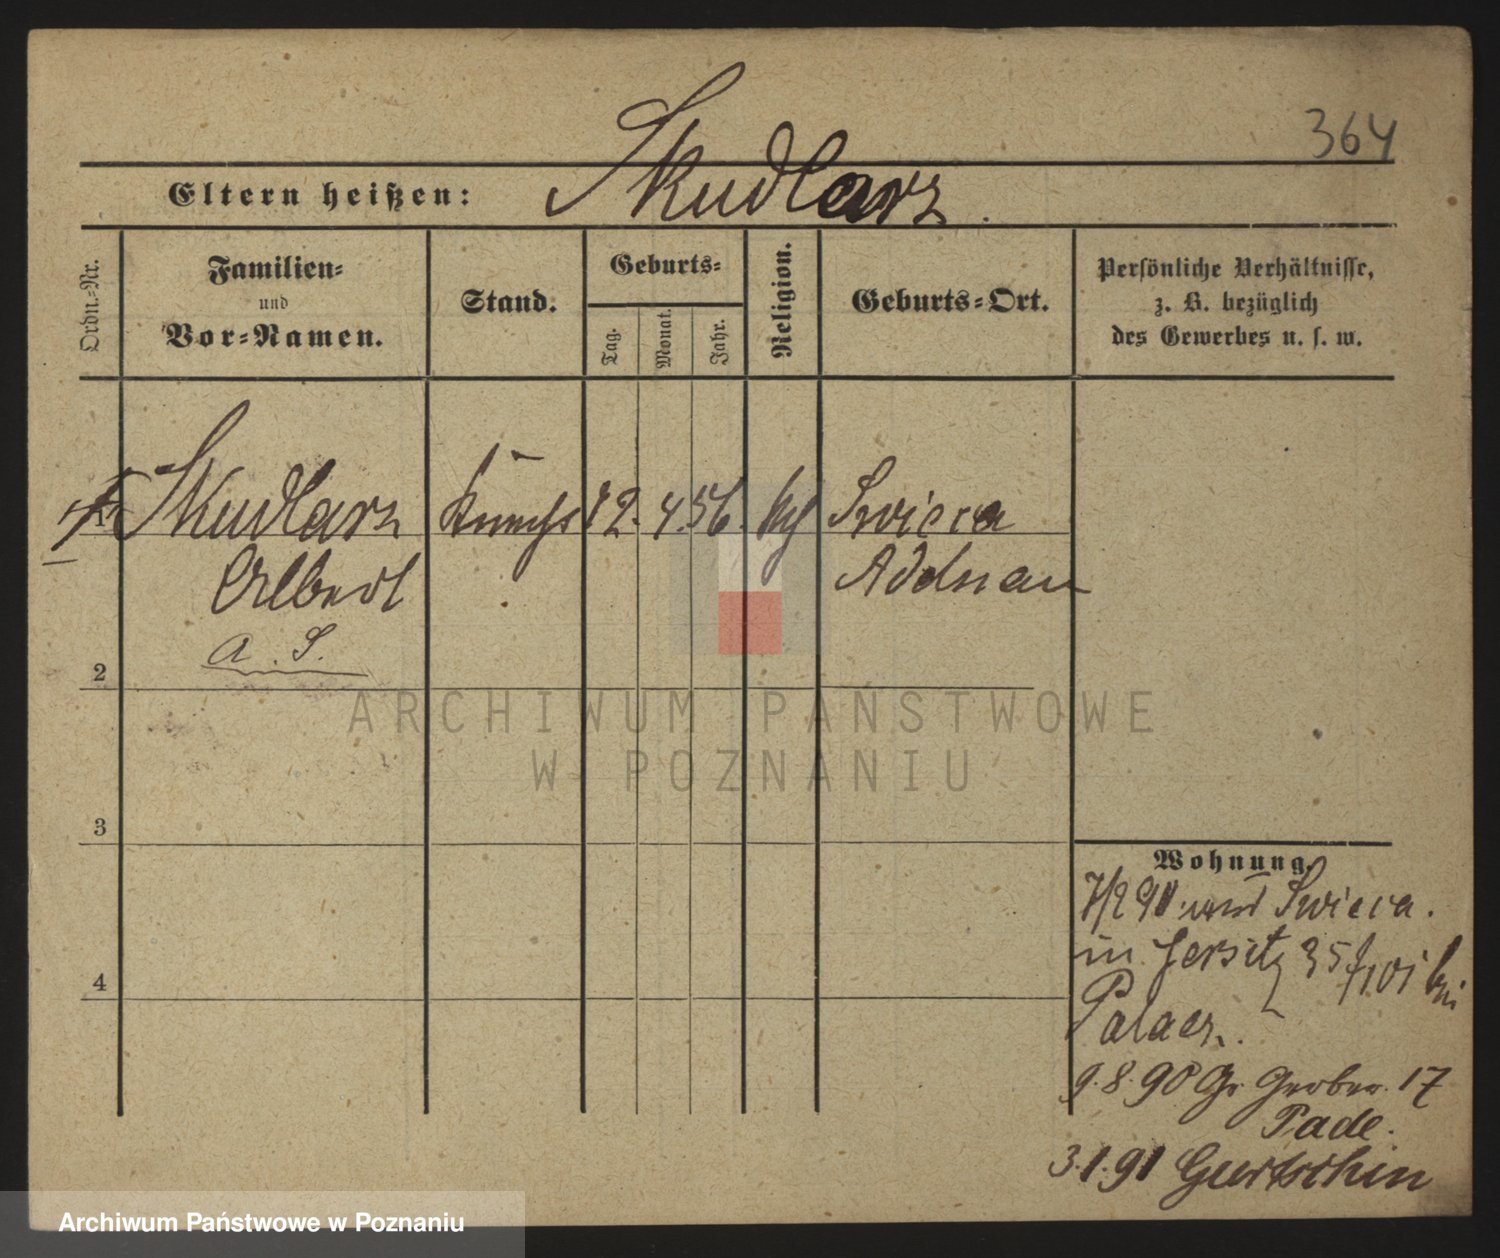 364
Eltern heißen: Skudlarz.
Ordn.-Nr.
Familien-
und
Vor-Namen.
Stand.
Geburts-
Tag.
Monat.
Jahr.
Religion.
Geburts-Ort.
Persönliche Verhältnisse,
z. B. bezüglich
des Gewerbes u. s. w.
1 Skudlarz 12. 4. 56. Swierca
Albert Adelnau
A. S.
2
3
4
Wohnung.
7/2 90 Swierca.
in Jersitz 35
9.8.90 Gr Gerber. 17
3.1.91 Gurtschin
ARCHIWUM PAŃSTWOWE
W POZNANIU
Archiwum Państwowe w Poznaniu